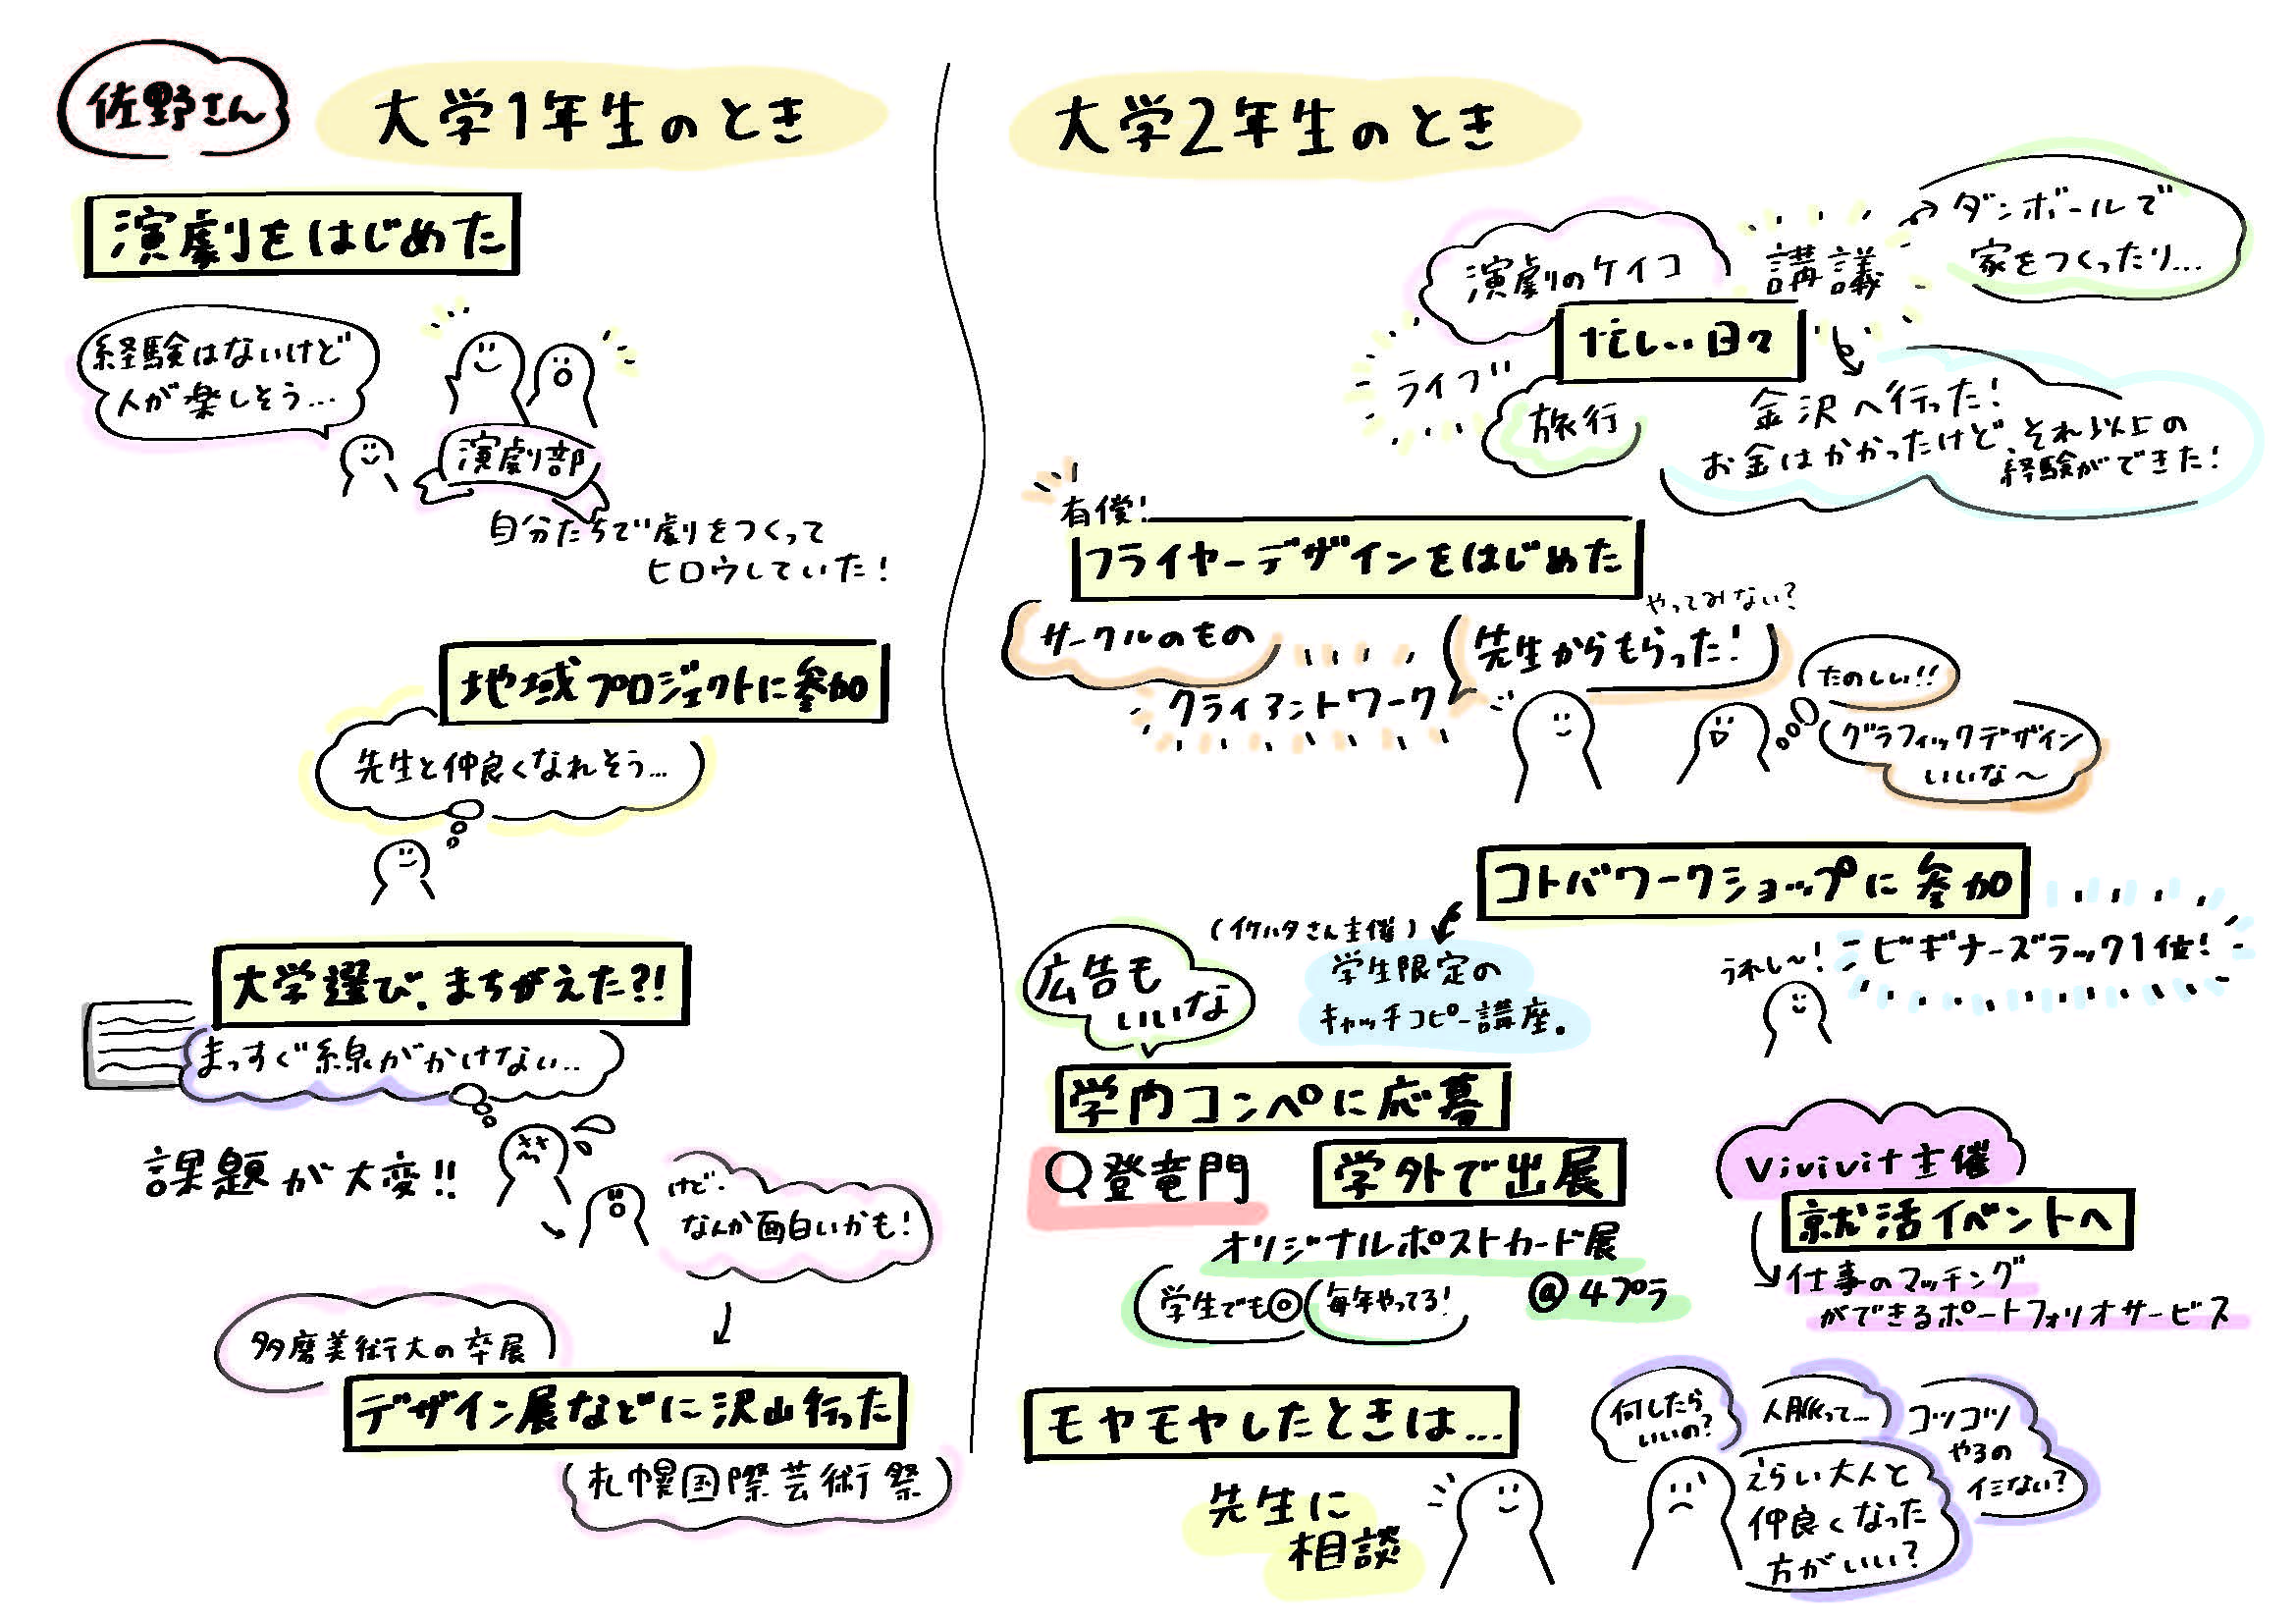 佐野さん
大学1年生のとき
演劇をはじめた
経験はないけど
人が楽しそう…
演劇部
自分たちで劇をつくって
ヒロウしていた!
地域プロジェクトに参加
先生と仲良くなれそう…
大学選び、まちがえた?!
まっすぐ線がかけない…
課題が大変!!
けど、
なんか面白いかも!
多摩美術大の卒展
デザイン展などに沢山行った
札幌国際芸術祭
大学2年生のとき
演劇のケイコ
講議
ダンボールで
家をつくったり…
忙しい日々
ライブ
旅行
金沢へ行った!
お金はかかったけど、それ以上の
経験ができた!
有償!
フライヤーデザインをはじめた
サークルのもの
クライアントワーク
やってみない?
先生からもらった!
たのしい!!
グラフィックデザイン
いいな〜
コトバワークショップに参加
(イケハタさん主催)
学生限定の
キャッチコピー講座。
うれし〜!
ビギナーズラック1位!
広告も
いいな
学内コンペに応募
登竜門
学外で出展
オリジナルポストカード展
学生でも◎
毎年やってる!
@4プラ
Vivivit主催
就活イベントへ
仕事のマッチング
ができるポートフォリオサービス
モヤモヤしたときは…
先生に
相談
何したら
いいの?
人脈って…
コツコツ
やるの
イミない?
えらい大人と
仲良くなった
方がいい?